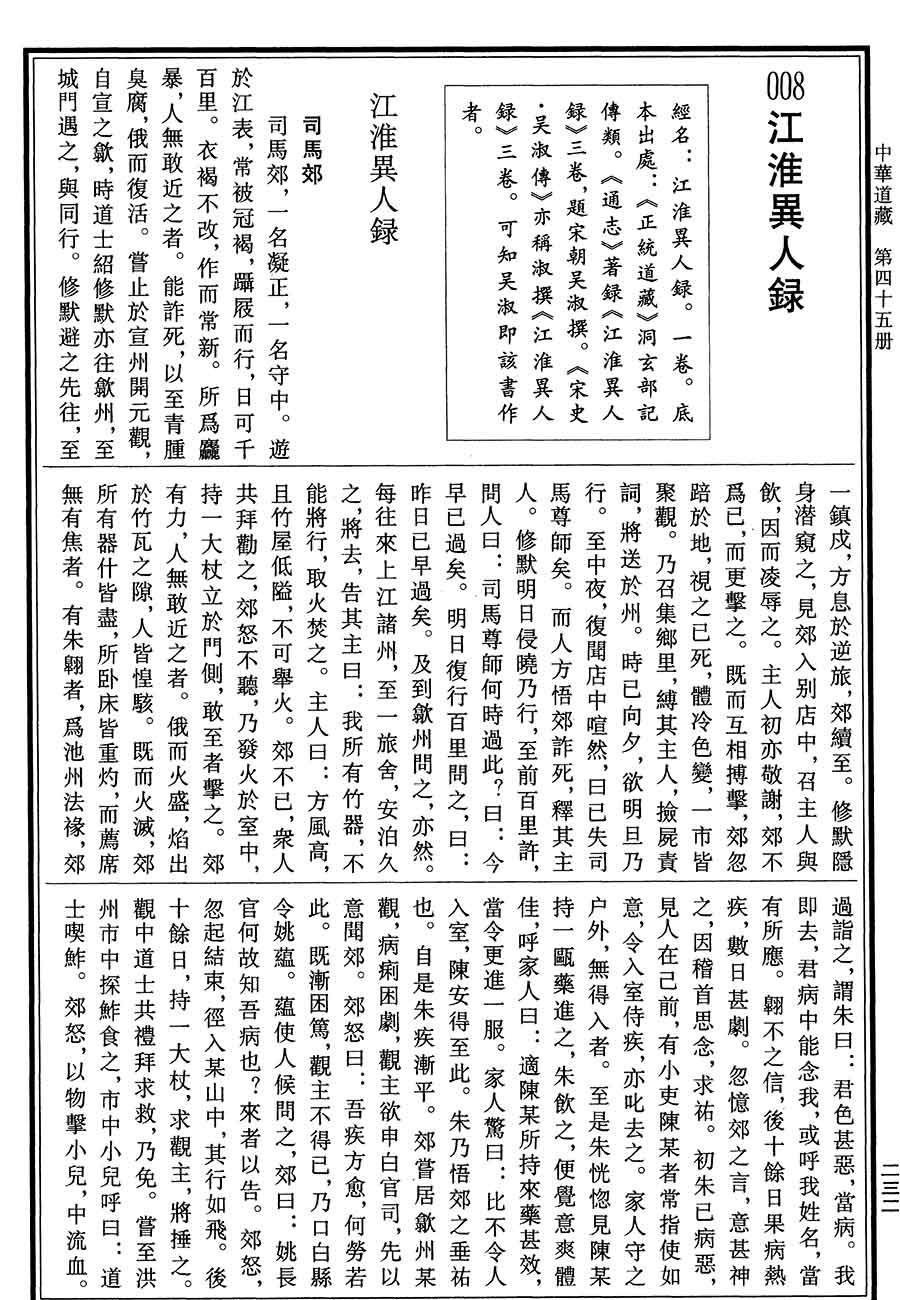 中華道藏 第四十五册
二三二
008江淮異人録
經名：江淮異人録。一卷。底
本出處：《正統道藏》洞玄部記
傳類。《通志》著録《江淮異人
録》三卷，題宋朝吴淑撰。《宋史
·吴淑傳》亦稱淑撰《江淮異人
録》三卷。可知吴淑即該書作
者。
江淮異人録
司馬郊
司馬郊，一名凝正，一名守中。遊
於江表，常被冠褐，躡屐而行，日可千
百里。衣褐不改，作而常新。所爲麤
暴，人無敢近之者。能詐死，以至青腫
臭腐，俄而復活。嘗止於宣州開元觀，
自宣之歙，時道士紹修默亦往歙州，至
城門遇之，與同行。修默避之先往，至
一鎮戍，方息於逆旅，郊續至。修默隱
身潜窺之，見郊入别店中，召主人與
飲，因而凌辱之。主人初亦敬謝，郊不
爲已，而更擊之。既而互相搏擊，郊忽
踣於地，視之已死，體冷色變，一市皆
聚觀。乃召集鄉里，縛其主人，撿屍責
詞，將送於州。時已向夕，欲明旦乃
行。至中夜，復聞店中喧然，曰已失司
馬尊師矣。而人方悟郊詐死，釋其主
人。修默明日侵曉乃行，至前百里許，
問人曰：司馬尊師何時過此？曰：今
早已過矣。明日復行百里問之，曰：
昨日已早過矣。及到歙州問之，亦然。
每往來上江諸州，至一旅舍，安泊久
之，將去，告其主曰：我所有竹器，不
能將行，取火焚之。主人曰：方風高，
且竹屋低隘，不可舉火。郊不已，衆人
共拜勸之，郊怒不聽，乃發火於室中，
持一大杖立於門側，敢至者擊之。郊
有力，人無敢近之者。俄而火盛，焰出
於竹瓦之隙，人皆惶駭。既而火滅，郊
所有器什皆盡，所卧床皆重灼，而薦席
無有焦者。有朱翱者，爲池州法禄，郊
過詣之，謂朱曰：君色甚惡，當病。我
即去，君病中能念我，或呼我姓名，當
有所應。翱不之信，後十餘日果病熱
疾，數日甚劇。忽憶郊之言，意甚神
之，因稽首思念，求祐。初朱已病惡，
見人在己前，有小吏陳某者常指使如
意，令入室侍疾，亦叱去之。家人守之
户外，無得入者。至是朱恍惚見陳某
持一甌藥進之，朱飲之，便覺意爽體
佳，呼家人曰：適陳某所持來藥甚效，
當令更進一服。家人驚曰：比不令人
入室，陳安得至此。朱乃悟郊之垂祐
也。自是朱疾漸平。郊嘗居歙州某
觀，病痢困劇，觀主欲申白官司，先以
意聞郊。郊怒曰：吾疾方愈，何勞若
此。既漸困篤，觀主不得已，乃口白縣
令姚蘊。蘊使人候問之，郊曰：姚長
官何故知吾病也？來者以告。郊怒，
忽起結束，徑入某山中，其行如飛。後
十餘日，持一大杖，求觀主，將捶之。
觀中道士共禮拜求救，乃免。嘗至洪
州市中探鮓食之，市中小兒呼曰：道
士喫鮓。郊怒，以物擊小兒，中流血。